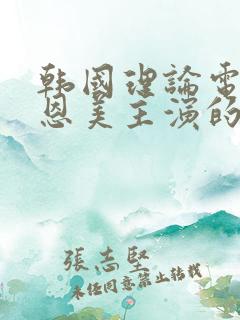 韩國理論電
恩美主演的
張志堅
未任同意禁止转载